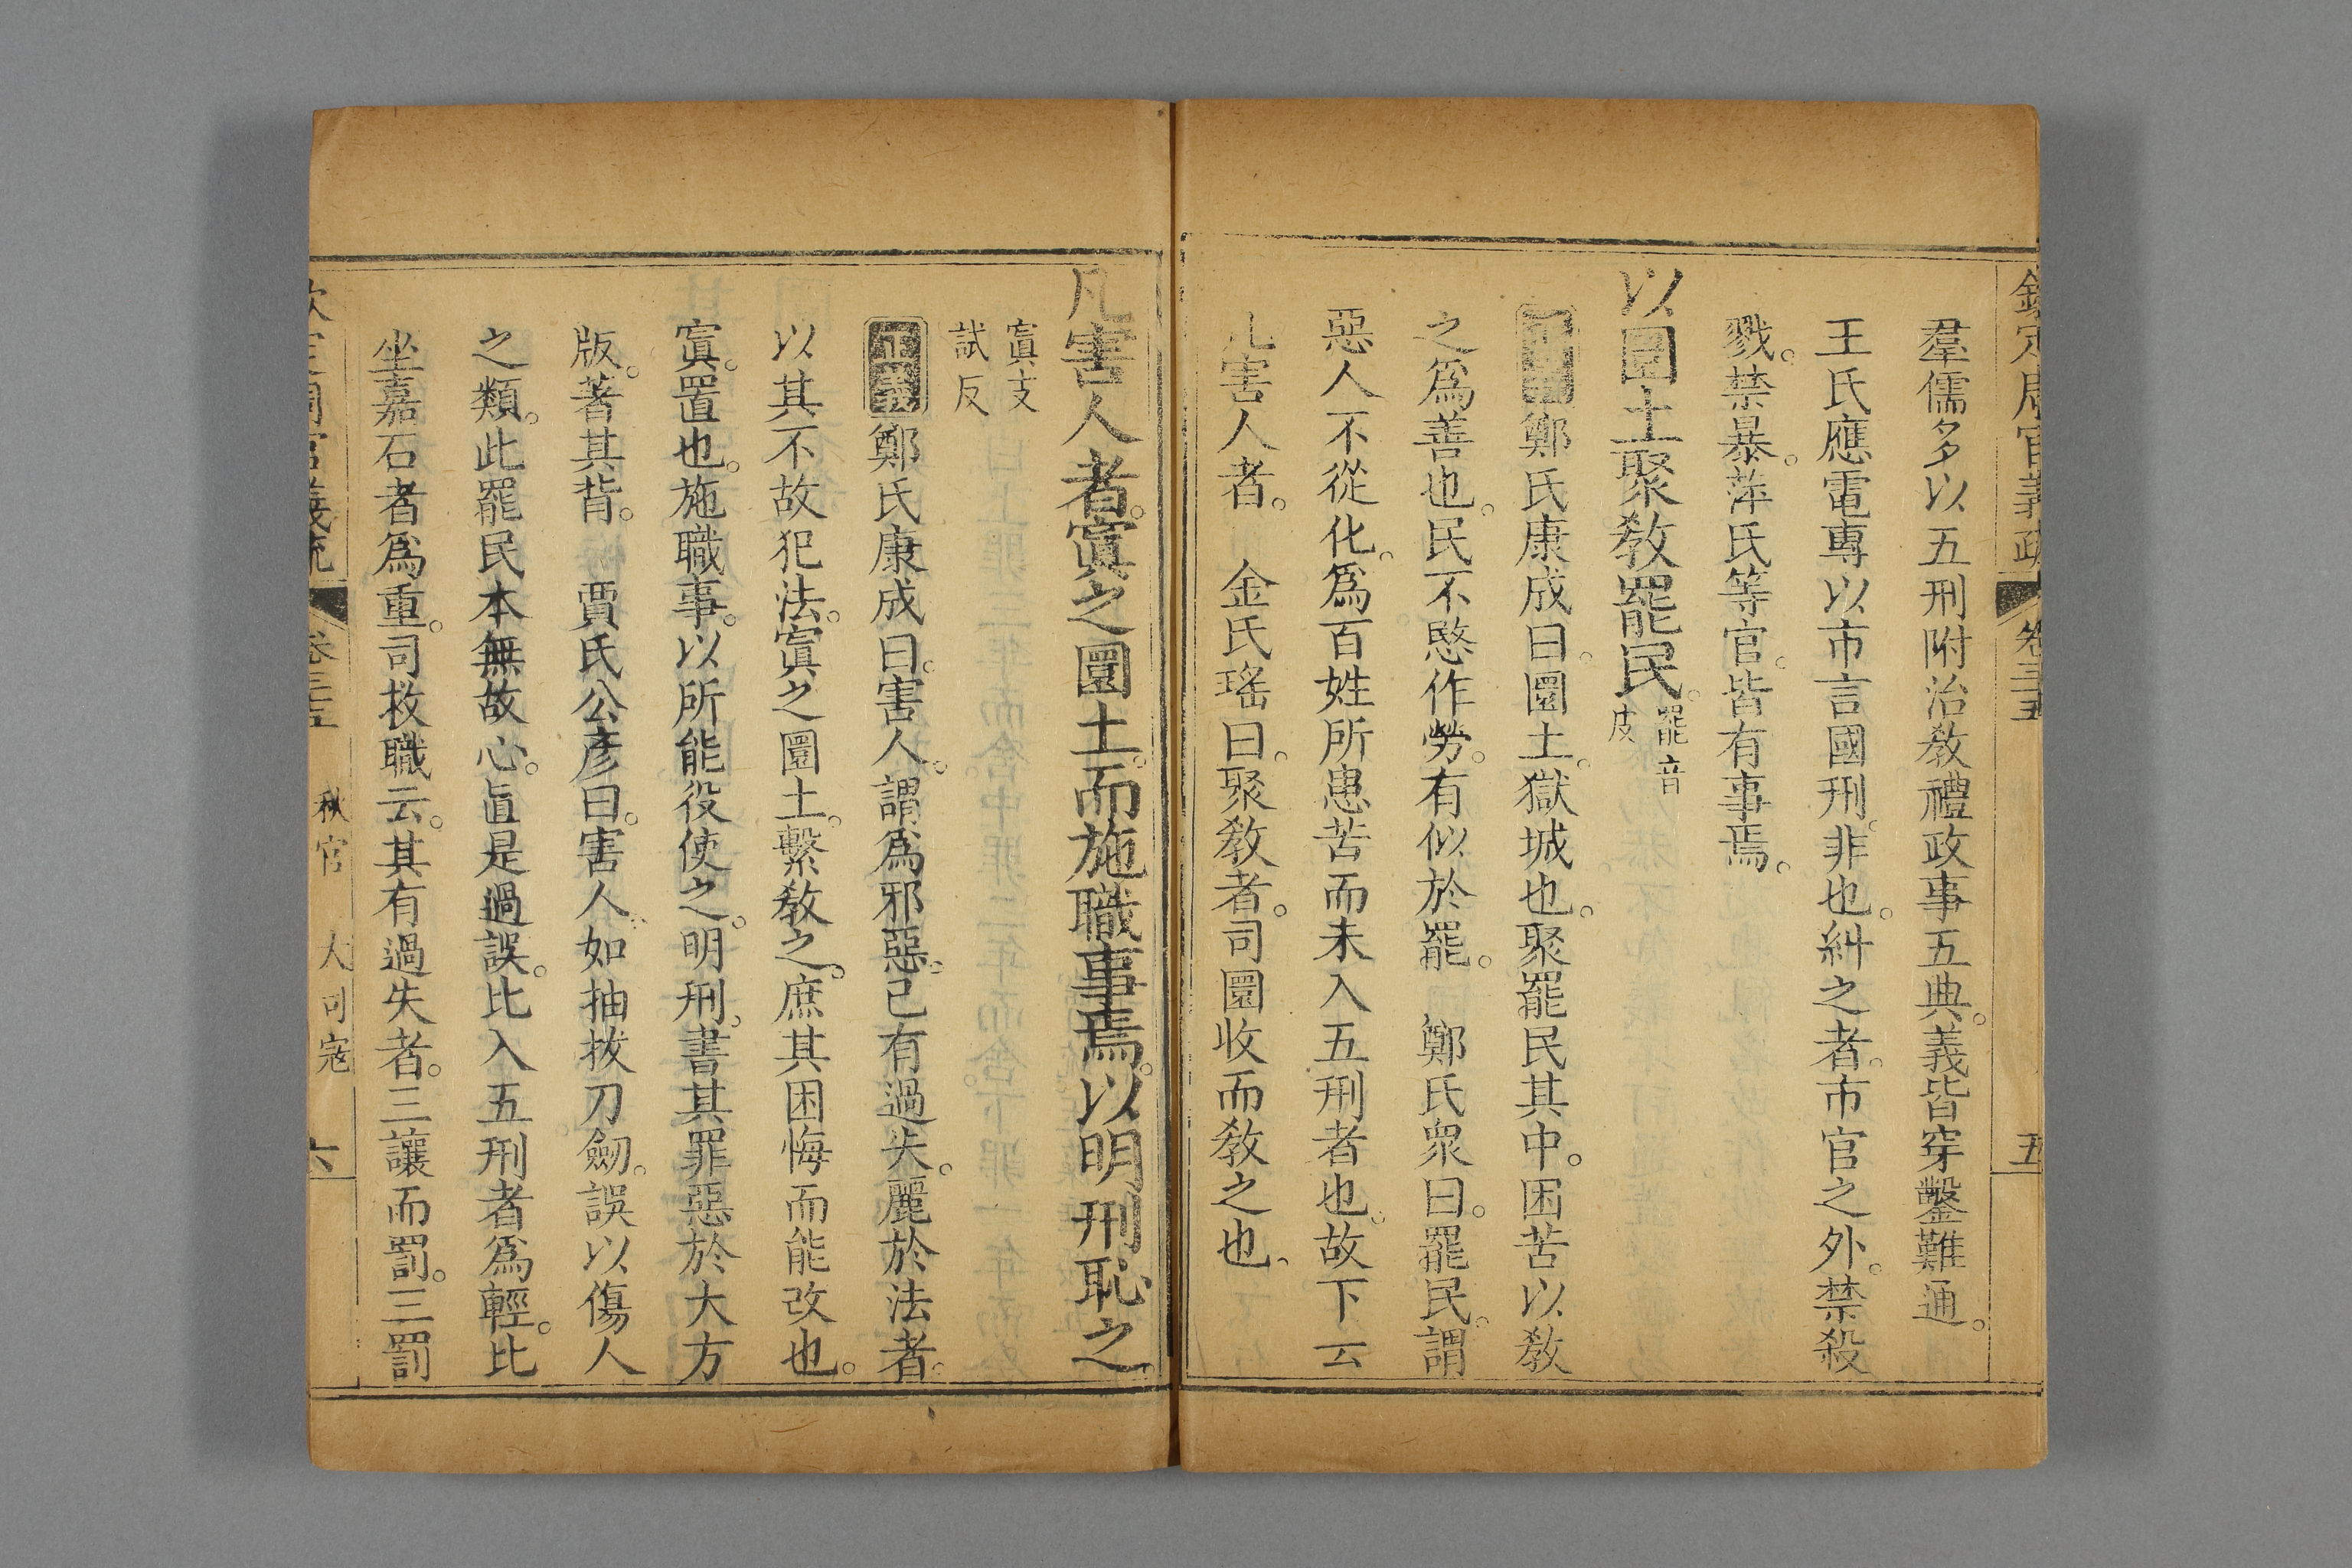 欽定周官義疏 卷三十五 五
羣儒多以五刑附治教禮政事五典。義皆穿鑿難通。
王氏應電專以市言國刑。非也。糾之者。市官之外。禁殺
戮。禁暴。萍氏等官。皆有事焉。
以圜土聚教罷民。罷音皮
正義鄭氏康成曰。圜土。獄城也。聚罷民其中。困苦以教
之爲善也。民不愍作勞。有似於罷。 鄭氏衆曰。罷民。謂
惡人不從化。爲百姓所患苦而未入五刑者也。故下云
凡害人者。 金氏瑤曰。聚教者。司圜收而教之也。
凡害人者。寘之圜土。而施職事焉。以明刑恥之。
寘支試反
正義鄭氏康成曰。害人。謂爲邪惡。已有過失。麗於法者。
以其不故犯法。寘之圜土。繫教之。庶其困悔而能改也。
寘。置也。施職事。以所能役使之。明刑。書其罪惡於大方
版。著其背。 賈氏公彥曰。害人。如抽拔刀劒。誤以傷人
之類。此罷民本無故心。直是過誤。比入五刑者爲輕。比
坐嘉石者爲重。司救職云。其有過失者。三讓而罰。三罰
欽定周官義疏 卷三十五 秋官 大司寇 六